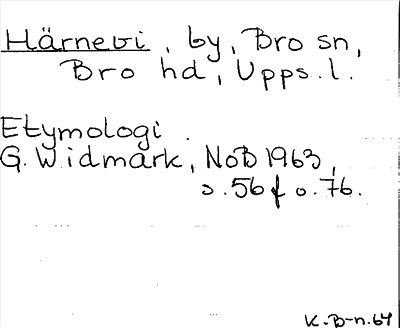 Härnevi, by, Bro sn,
Bro hd, Upps. l.
Etymologi.
G. Widmark, NoB 1963,
s. 56 f o. 76.
K. B-n. 64